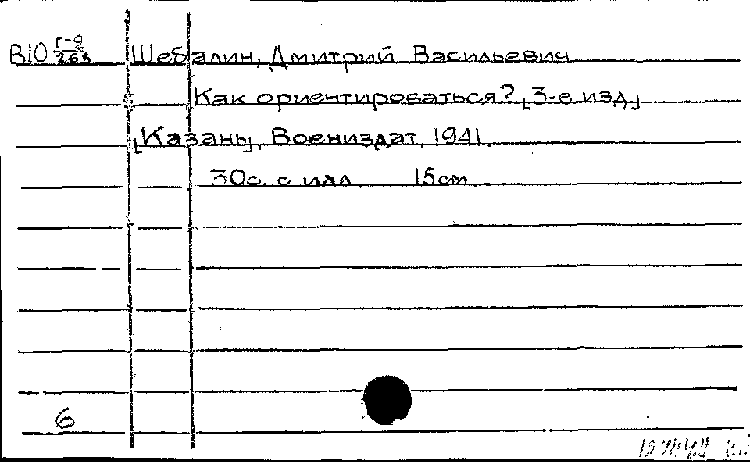 В10 Г-9/263 Шебалин, Дмитрий Васильевич
Как ориентироваться? [3-е изд]
[Казань], Воениздат, 1941.
30с. с илл. 15см.
6